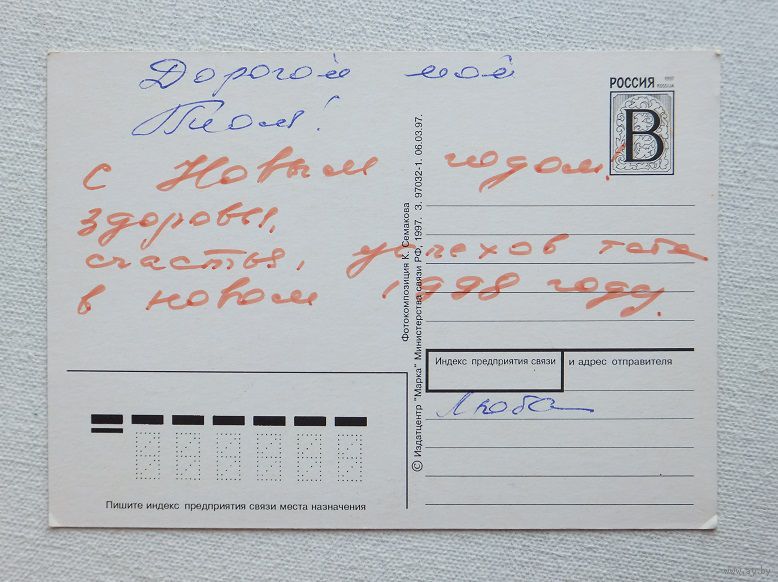 Дорогой мой
Тиом!
С Новым годом!
здоровья,
счастья, успехов тебе
в новом 1998 году.
РОССИЯ 1997
ROSSIJA
B
Фотокомпозиция К. Семакова
© Издатцентр "Марка" Министерства связи РФ, 1997. З. 97032-1. 06.03.97.
Индекс предприятия связи и адрес отправителя
Люба
Пишите индекс предприятия связи места назначения
www.ay.by